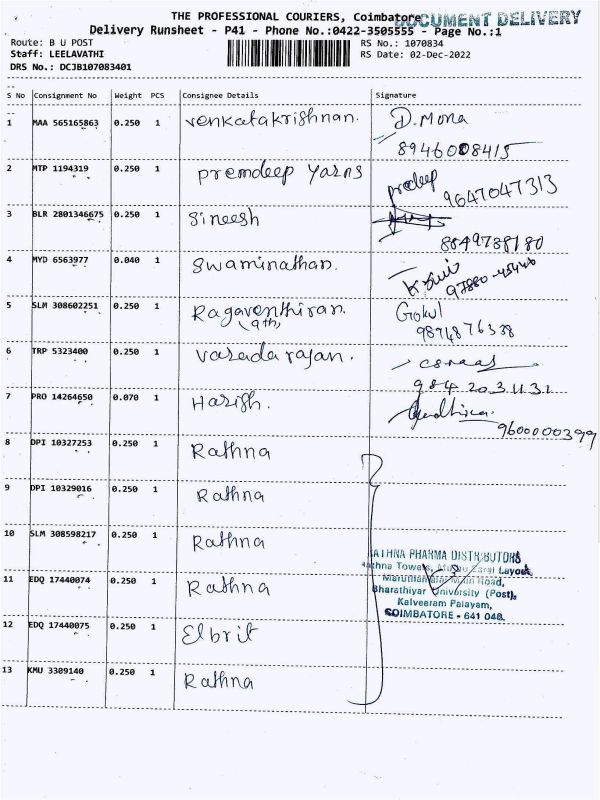 THE PROFESSIONAL COURIERS, Coimbatore
DOCUMENT DELIVERY
Delivery Runsheet - P41 - Phone No.:0422-3505555 - Page No.:1
Route: B U POST
RS No.: 1070834
Staff: LEELAVATHI
RS Date: 02-Dec-2022
DRS No.: DCJB107083401
S No Consignment No Weight PCS Consignee Details Signature
1 MAA 565165863 0.250 1 Venkatakrishnan. D. Mona
8946008415
2 MTP 1194319 0.250 1 Premdeep Yarns pradeep
9647047313
3 BLR 2801346675 0.250 1 Sineesh
8849788180
4 MYD 6563977 0.040 1 Swaminathan.
97880-45446
5 SLM 308602251 0.250 1 Ragaventhiran. Gokul
(9th) 9874876338
6 TRP 5323400 0.250 1 Varadarajan.
984 20 31131
7 PRO 14264650 0.070 1 Harish.
9600000399
8 DPI 10327253 0.250 1 Rathna
9 DPI 10329016 0.250 1 Rathna
10 SLM 308598217 0.250 1 Rathna
RATHNA PHARMA DISTRIBUTORS
Rathna Towers, Layout,
11 EDQ 17440074 0.250 1 Rathna
Main Road,
Bharathiyar University (Post),
Kalveeram Palayam,
COIMBATORE - 641 046.
12 EDQ 17440075 0.250 1 Elbrit
13 KMU 3309140 0.250 1 Rathna